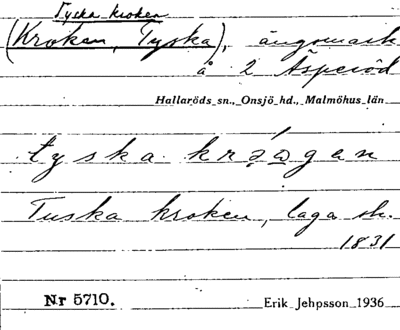 Tyska kroken
(Kroken, Tyska), ängsmark
å 2 Äsperöd
Hallaröds sn., Onsjö hd., Malmöhus län
tyska krǫgan
Tuska kroken, laga sk.
1831
Nr 5710.
Erik Jehpsson 1936